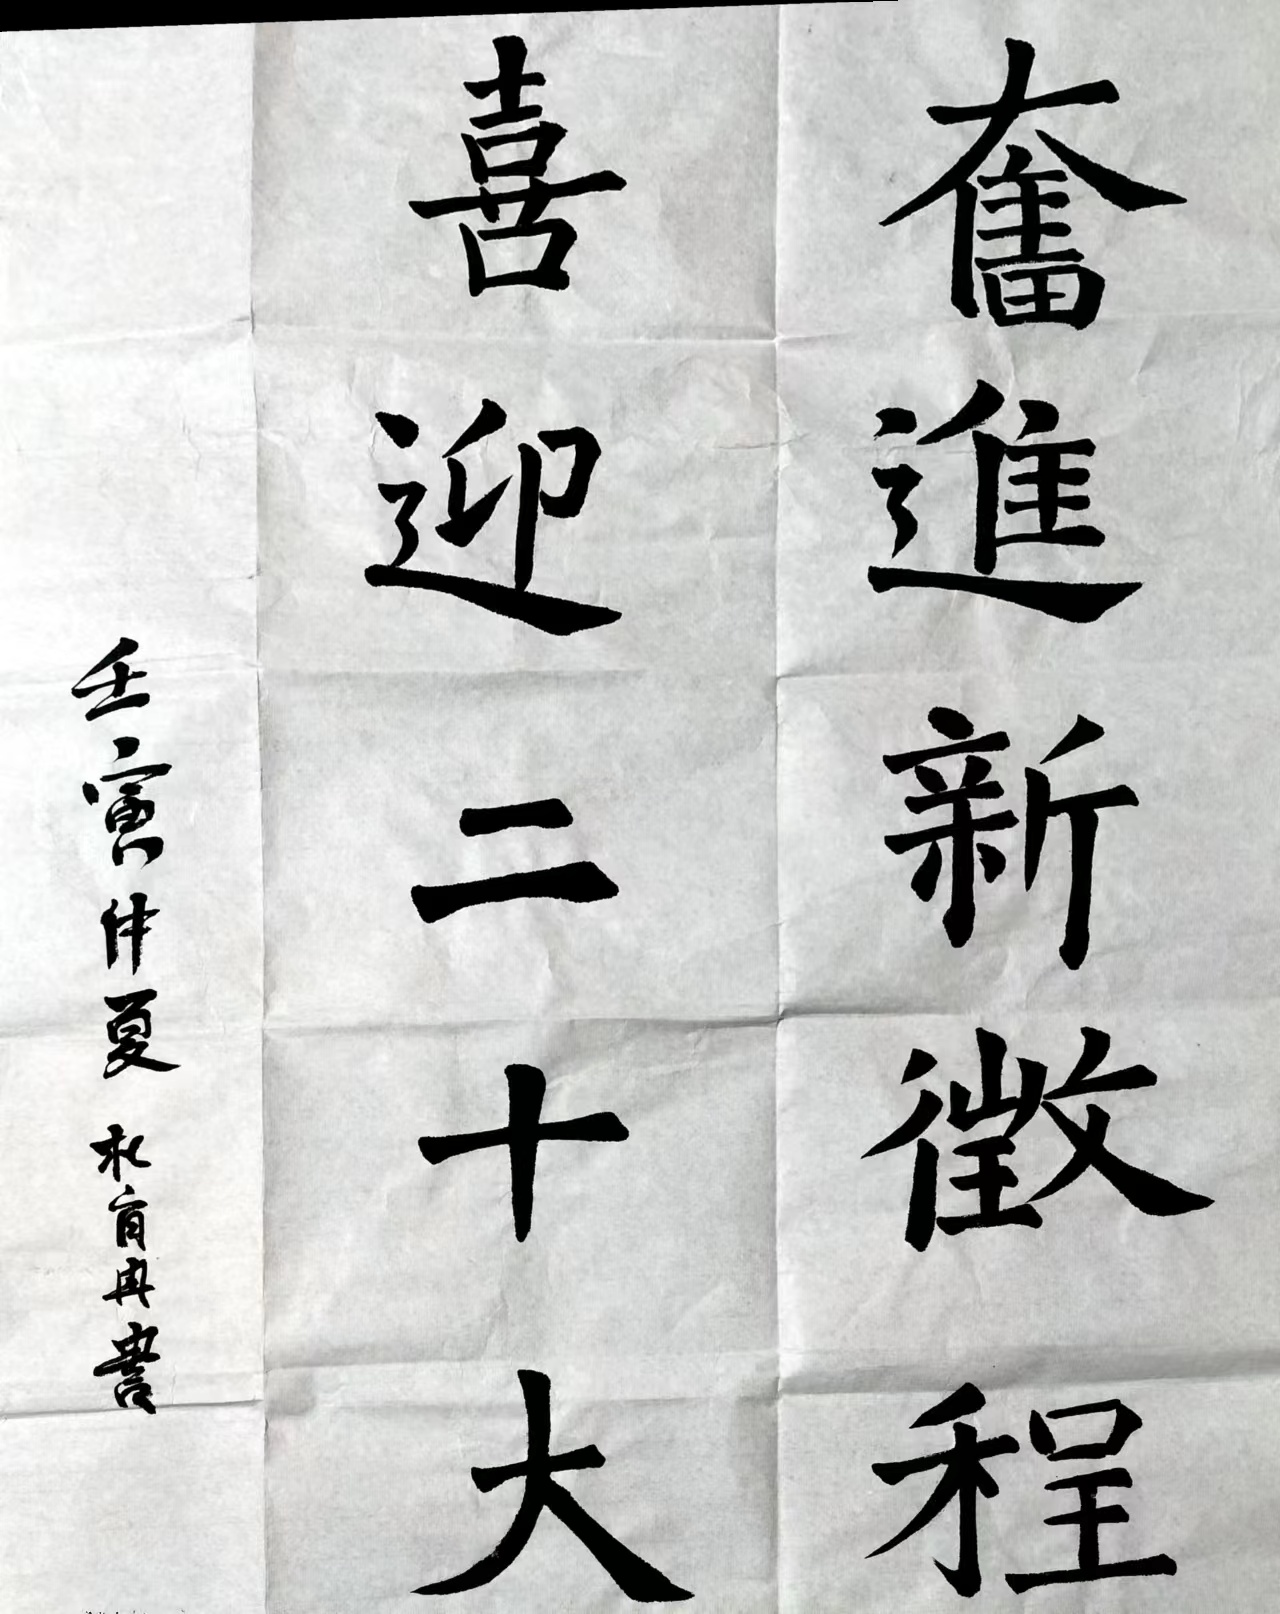 奮進新徵程
喜迎二十大
壬寅仲夏 育冉書